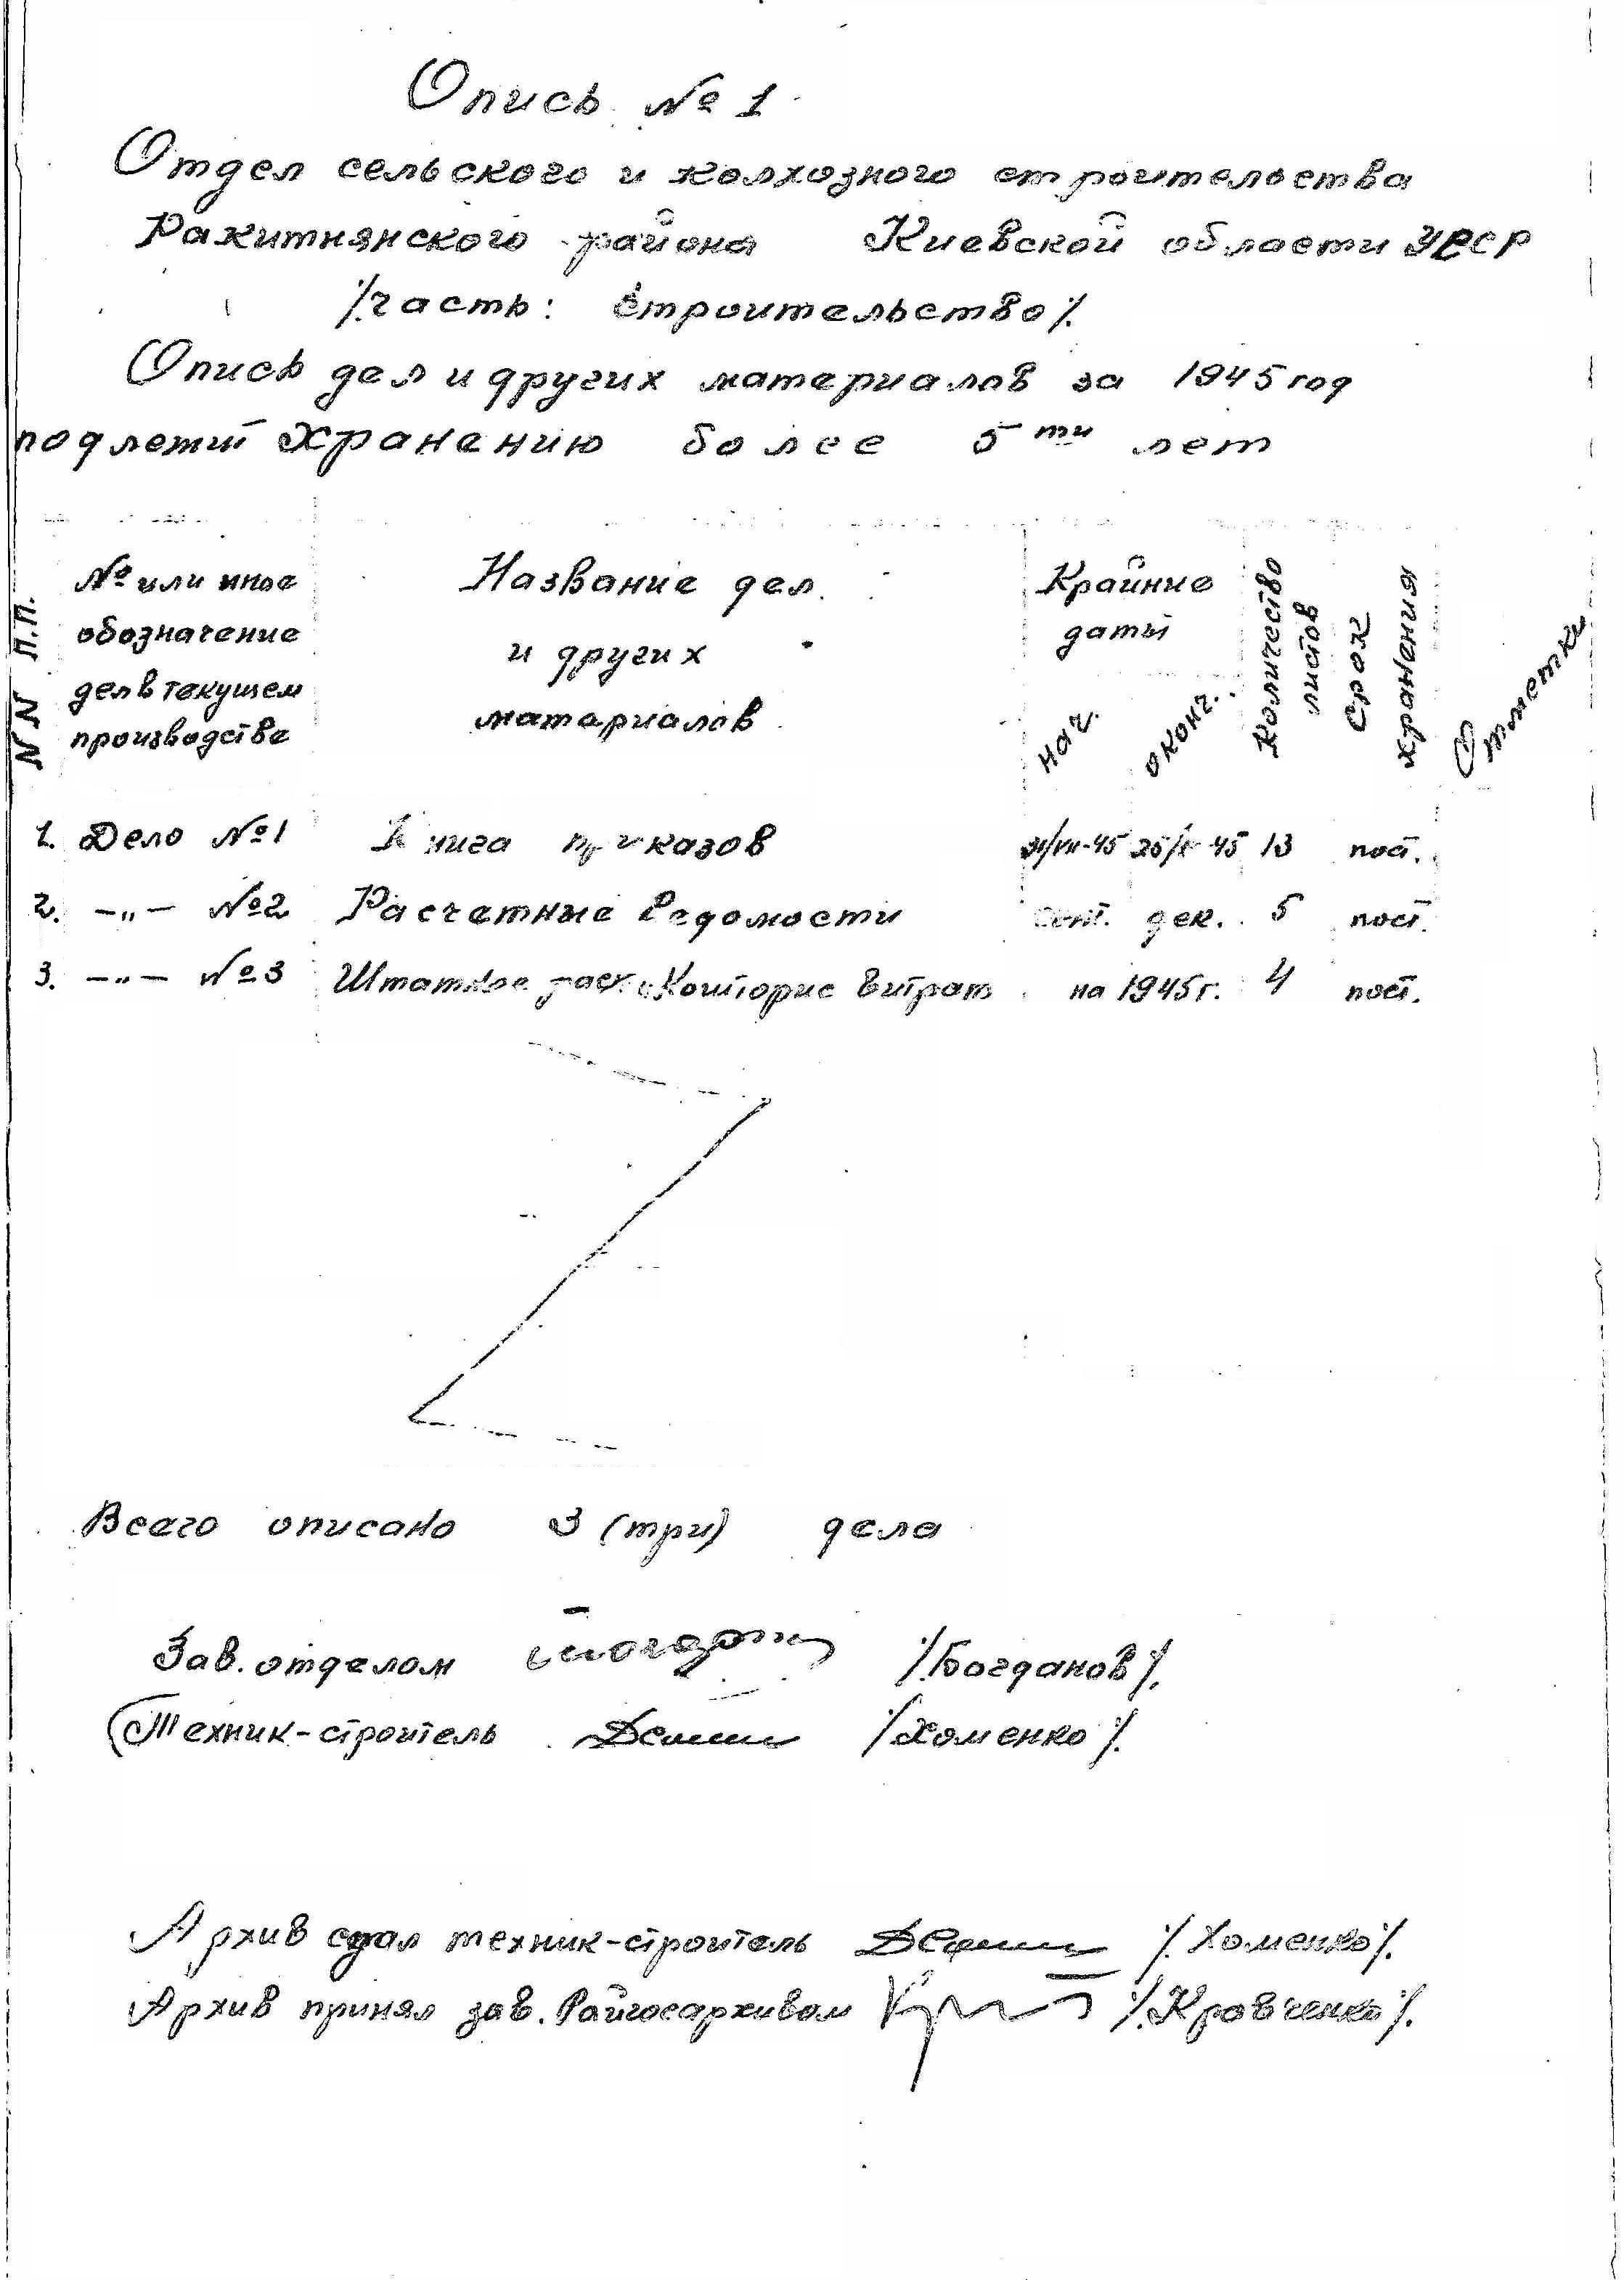 Опись № 1
Отдел сельского и колхозного строительства
Ракитнянского района Киевской области УССР
/часть: строительство/.
Опись дел и других материалов за 1945 год
подлежит хранению более 5ти лет
NN п.п.
№ или иное обозначение дел в текущем производстве
Название дел и других материалов
Крайние даты
нач.
оконч.
Количество листов
Срок хранения
Отметки
1. Дело №1 Книга приказов 45 45 13 пост.
2. -"- №2 Расчетные Ведомости сент. дек. 5 пост.
3. -"- №3 Штатное Кошторис витрат на 1945г. 4 пост.
Всего описано 3 (три) дела
Зав. отделом /Богданов/.
Техник-строитель /Хоменко/.
Архив сдал техник-строитель /Хоменко/.
Архив принял зав. Райгосархивом /Кравченко/.